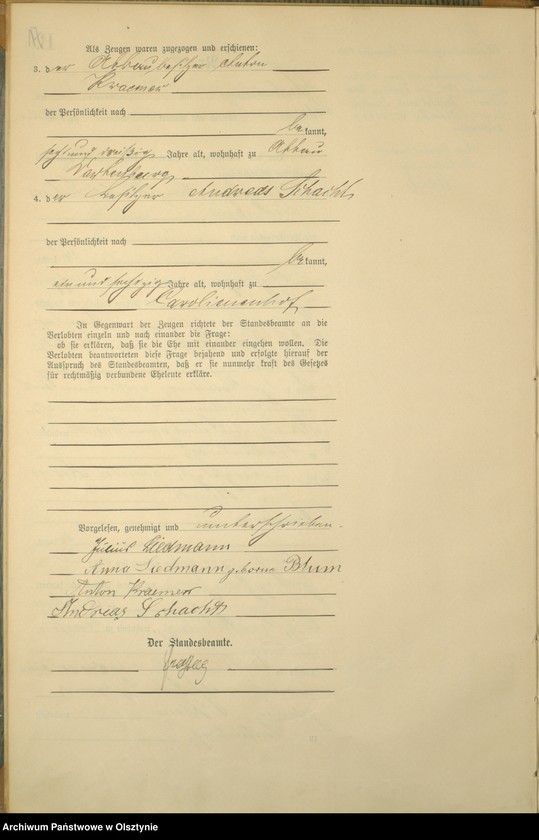 Als Zeugen waren zugezogen und erschienen:
3. der Abbaubesitzer Anton
Kraemer
der Persönlichkeit nach
bekannt,
sechsunddreißig Jahre alt, wohnhaft zu Abbau
Wartenburg
4. der Besitzer Andreas Schacht
der Persönlichkeit nach
bekannt,
einundsechzig Jahre alt, wohnhaft zu
Carolinenhof
In Gegenwart der Zeugen richtete der Standesbeamte an die
Verlobten einzeln und nach einander die Frage:
ob sie erklären, daß sie die Ehe mit einander eingehen wollen. Die
Verlobten beantworteten diese Frage bejahend und erfolgte hierauf der
Ausspruch des Standesbeamten, daß er sie nunmehr kraft des Gesetzes
für rechtmäßig verbundene Eheleute erkläre.
Vorgelesen, genehmigt und unterschrieben
Julius Liedmann
Anna Liedmann geborene Blum
Anton Kraemer
Andreas Schacht
Der Standesbeamte.
Archiwum Państwowe w Olsztynie